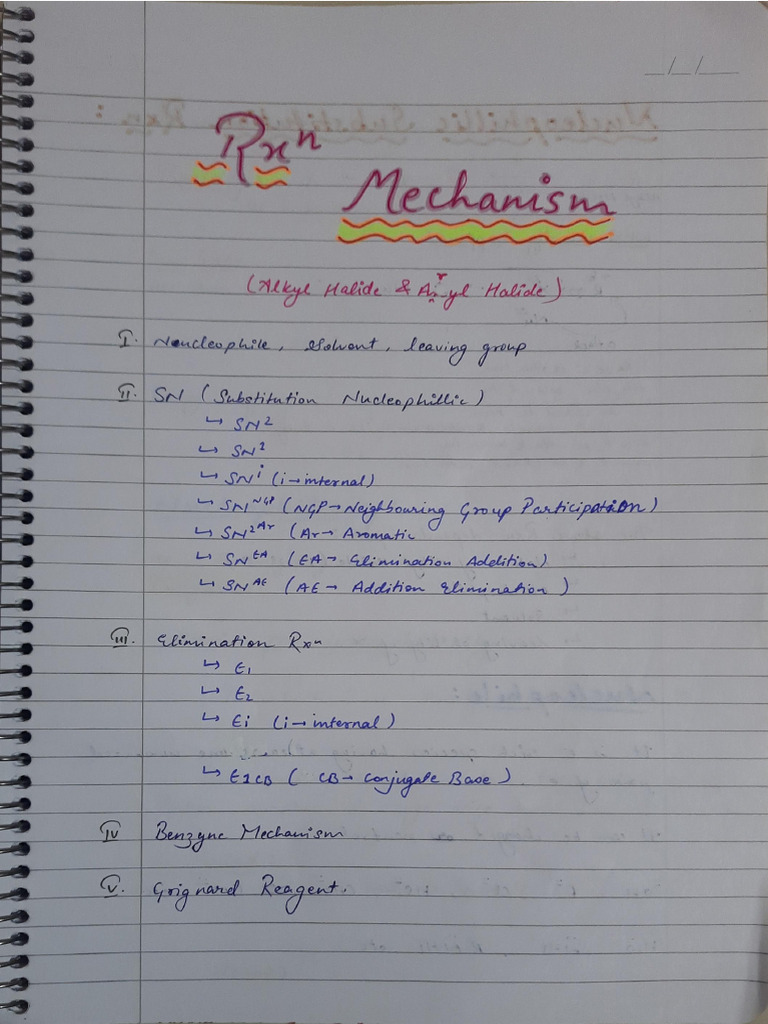 _/_/__
Rxⁿ
Mechanism
(Alkyl Halide & Aryl Halide)
I. Neucleophile, Solvent, leaving group
II. SN (Substitution Nucleophillic)
↳ SN²
↳ SN²
↳ SNⁱ (i→internal)
↳ SN1ᴺᴳᴾ (NGP→Neighbouring Group Participation)
↳ SN²ᴬʳ (Ar→ Aromatic
↳ SNᴱᴬ (EA→ Elimination Addition)
↳ SNᴬᴱ (AE→ Addition Elimination)
III. Elimination Rxⁿ
↳ E₁
↳ E₂
↳ Ei (i→internal)
↳ E1CB (CB→ Conjugate Base)
IV Benzyne Mechanism
V. Grignard Reagent.